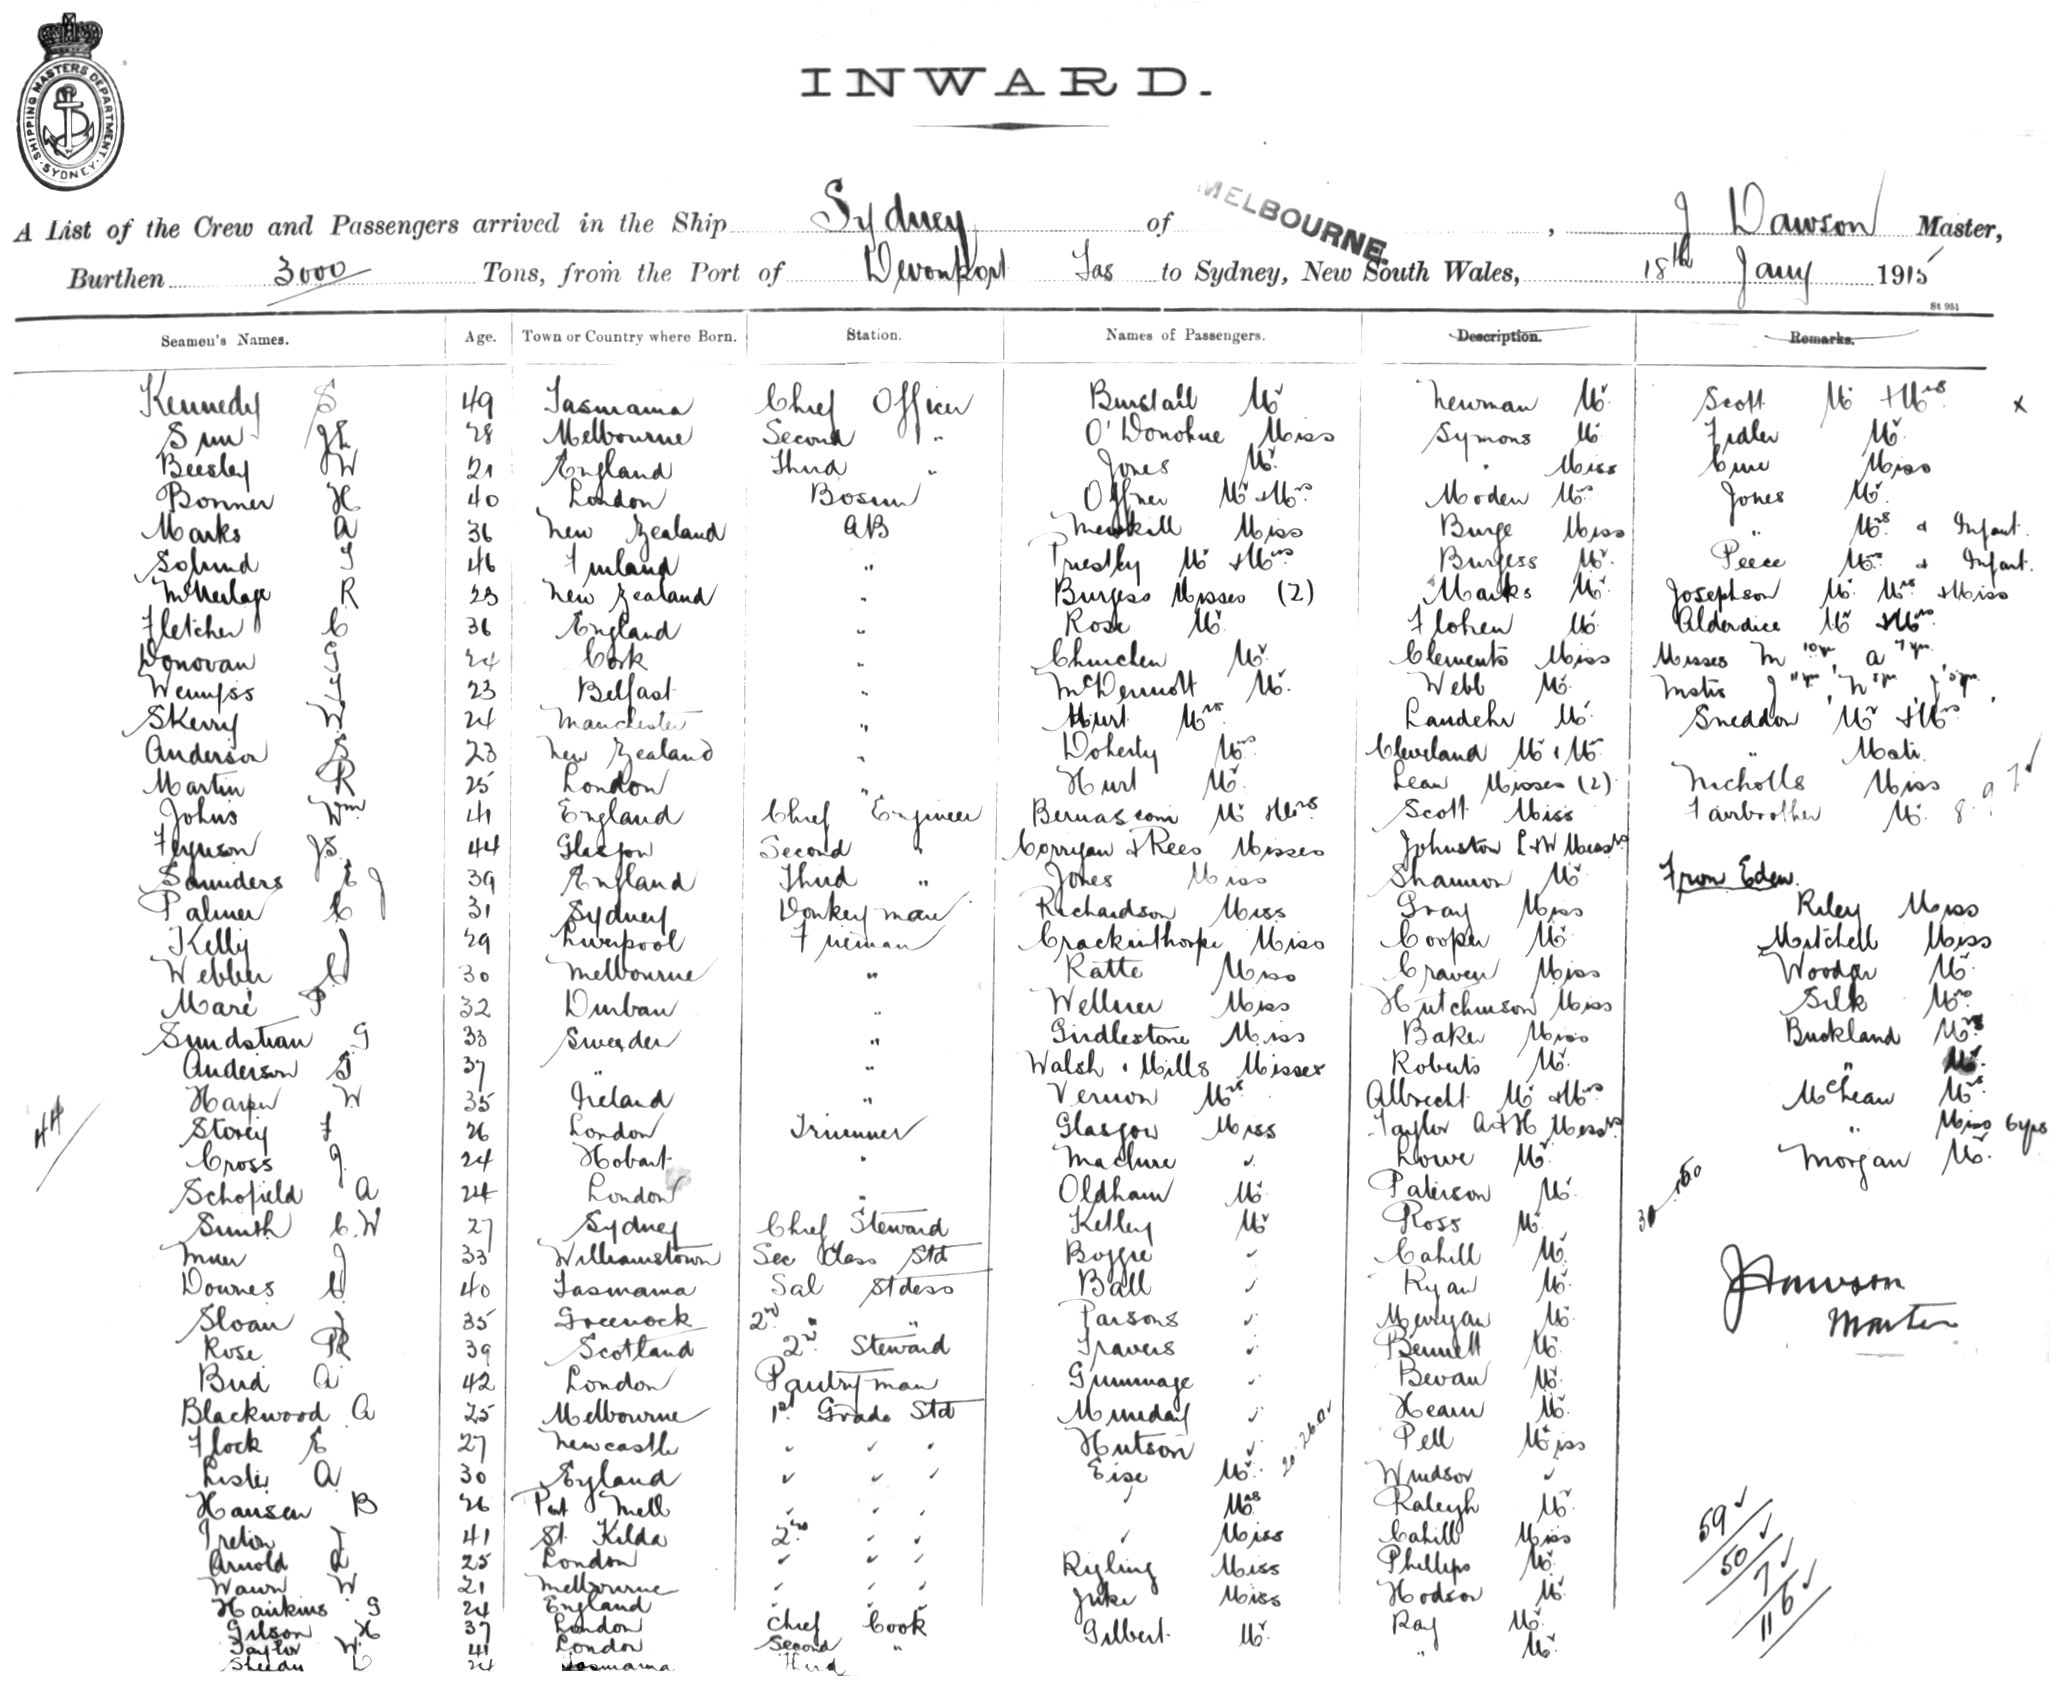 SHIPPING MASTERS DEPARTMENT. SYDNEY.
INWARD.
MELBOURNE.
A List of the Crew and Passengers arrived in the Ship Sydney of , J Dawson Master,
Burthen 3000 Tons, from the Port of Devonport Tas to Sydney, New South Wales, 18th Jany 1915
St 951
Seamen's Names. Age. Town or Country where Born. Station. Names of Passengers. Description. Remarks.
Kennedy S 49 Tasmania Chief Officer Burstall Mr Newman Mr Scott Mr + Mrs x
28 Melbourne Second " O'Donohue Miss Symons Mr Fidler Mr
Beesley W 21 England Third " Jones Mr " Miss Miss
Bonner H 40 London Bosun Offner Mr + Mrs Moden Mrs Jones Mr
Marks A 36 New Zealand AB Miss Burge Miss " Mrs & Infant
46 Finland " Priestley Mr + Mrs Burgess Mr Peece Mrs & Infant
R 23 New Zealand " Burgess Misses (2) Marks Mr Josephson Mr Mrs + Miss
Fletcher C 36 England " Rose Mr Mr Alderdice Mr + Mrs
Donovan 24 Cork " Mr Clements Miss Misses M 10yr A 7yr
Wemyss 23 Belfast " McDermott Mr Webb Mr
Skerry W 24 Manchester " Hurt Mrs Landehr Mr Sneddon Mr + Mrs
Anderson S 23 New Zealand " Doherty Mrs Cleveland Mr + Mr "
Martin R 25 London " Hurt Mr Lean Misses (2) Nicholls Miss
Johns Wm 41 England Chief Engineer Bernasconi Mr + Mrs Scott Miss Fairbrother Mr
Ferguson JS 44 Glasgow Second " Corrigan + Rees Misses Johnston Messrs
Saunders E J 39 England Third " Jones Miss Shannon Mr From Eden.
Palmer C 31 Sydney Donkeyman Richardson Miss Gray Miss Riley Miss
Kelly J 29 Liverpool Fireman Crackinthorpe Miss Cooper Mr Mitchell Miss
Webber C 30 Melbourne " Ratte Miss Craven Miss Mr
Maré P 32 Durban " Wellner Miss Hutchinson Miss Silk Mrs
G 33 Sweden " Girdlestone Miss Baker Miss Buckland Mrs
Anderson 37 " " Walsh + Mills Misses Roberts Mr " Mr
Harper W 35 Ireland " Vernon Mrs Albrecht Mr + Mrs McLean Mrs
44 Storey F 26 London Trimmer Glasgow Miss Taylor A + H Messrs " Miss 6yrs
Cross 24 Hobart " Maclure " Lowe Mr Morgan Mr
Schofield A 24 London " Oldham Mr Paterson Mr
Smith C.W 27 Sydney Chief Steward Kelley Mr Ross Mr
Muir J 33 Williamstown Sec Class Std " Cahill Mr
Downes C 40 Tasmania Sal Stdess Ball " Ryan Mr JDawson
Sloan J 35 Greenock 2nd " " Parsons " Mr Master
Rose 39 Scotland 2nd Steward Travers " Bennett Mr
A 42 London Pantryman Gummage " Bevan Mr
Blackwood A 25 Melbourne 1st Grade Std Munday " Hearn Mr
Flock E 27 Newcastle " " " Hutson " Pell Miss
Leslie A 30 England " " " Eise Mr Windsor "
Hansen B 26 Port Melb " " " " Mrs Raleigh Mr
Ireton J 41 St Kilda 2nd " " " Miss Cahill Miss
Arnold 25 London " " " Miss Phillips Mr
W 21 Melbourne " " " Juke Miss Hodson Mr
Hankins G 24 England " " "
Gilson H 37 London Chief Cook Gilbert Mr Ray Mr
Taylor W 41 London Second " " Mr
24 Tasmania Third
59
50
7
116